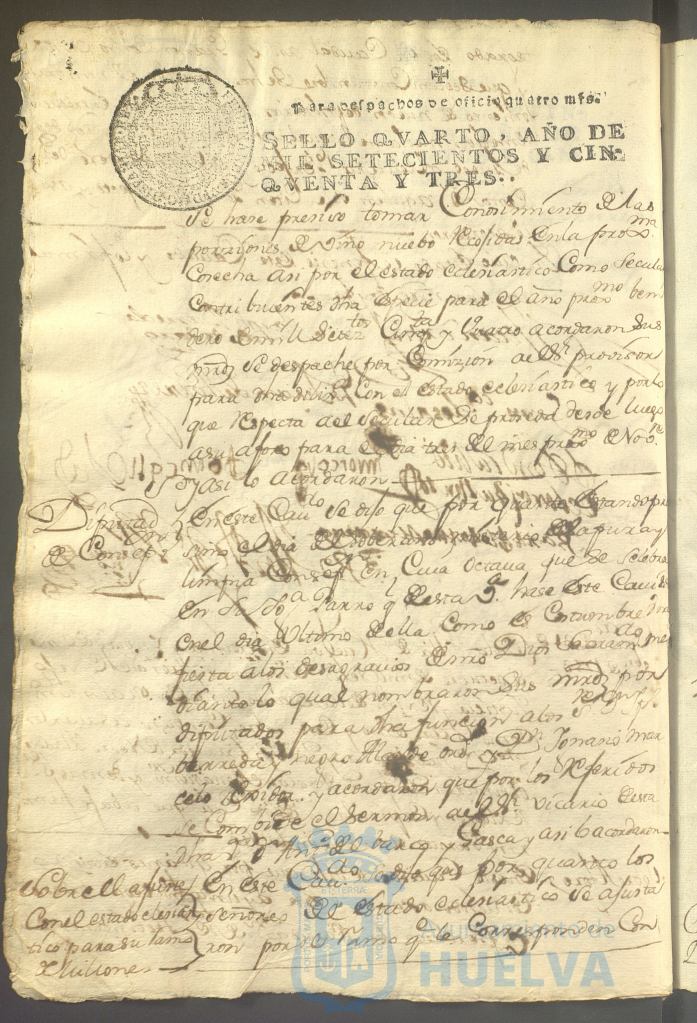 Para despachos de oficio quatro mrs.
SELLO QVARTO, AÑO DE
MIL SETECIENTOS Y CIN-
QVENTA Y TRES.
Se hase presiso tomar Conosimiento de las
porziones de vino nuebo Recojidas en la prox.ma
Cosecha asi por el estado eclesiastico Como Secular
Contribuientes para el año prox.mo beni
dero de mill Setez.tos Cinq.ta y Quatro acordaron sus
mrds. Se despache por Comizion al S.r provisor
para Con el estado eclesiastico y por lo
que Respecta del Secular Se proseda desde luego
a su aforo para el dia tres del mes prox.mo de Nob.e
Y asi lo acordaron
Diputad.
de Conсеp.
En este Cau.do Se dijo que por quanto estando pro
simo el dia de la pura y
limpia Consep.on En Cuia Octaua que Se selebra
En Su Parroq.l de esta hase este Cauildo
en el dia Ultimo de ella Como es Costumbre
fiesta a los desagrauios de nro Dios Sacram.do me
diante lo qual nombraron Sus mrds. por
diputados para dha funcion a los
barreda y negro Alcalde ord.o y D.n Ignasio Mar
y acordaron que por los Referidos
Se Combide el Sermon al Vicario de esta
barco y Gasca y asi lo acordaron
Sobre el
Con el estado eclesias
tico para su
Millones
En este Cau.do Se dijo que por quanto los
Señores del estado eclesiastico Se ajusta
ron por Corresponden Con
Ayuntamiento de
HUELVA